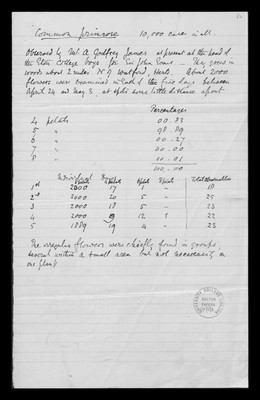 Common primrose 10,000 cases in all.
Observed by Mr. A Godfrey James at present at the head of
the Eton College boys for Sir John Evans. They grew in
woods about 2 miles N of Watford, Herts. About 2000
flowers were examined in each of the five days between
April 24 and May 3, at spots some little distance apart.
Percentages
4 petals 00.83
5 " 98.89
6 " 00.27
7 " 00.00
8 " 00.01
100.00
1st 2000 17 1 – 18
2nd 2000 20 5 – 25
3 2000 18 5 – 23
4 2000 9 12 1 22
5 1889 19 4 – 23
The irregular flowers were chiefly found in groups,
several within a small area but not necessarily on
one plant
GALTON
PAPERS